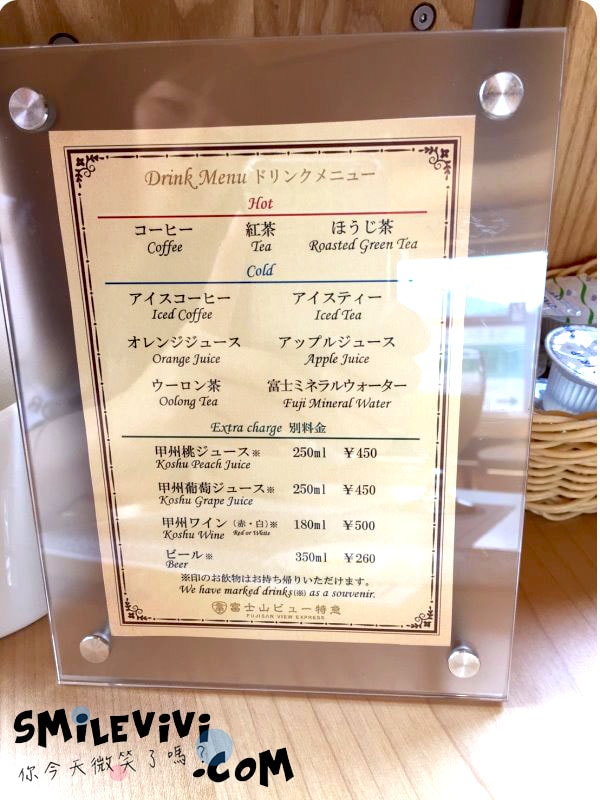 Drink Menu ドリンクメニュー
Hot
コーヒー 紅茶 ほうじ茶
Coffee Tea Roasted Green Tea
Cold
アイスコーヒー アイスティー
Iced Coffee Iced Tea
オレンジジュース アップルジュース
Orange Juice Apple Juice
ウーロン茶 富士ミネラルウォーター
Oolong Tea Fuji Mineral Water
Extra charge 別料金
甲州桃ジュース※ 250ml ￥450
Koshu Peach Juice
甲州葡萄ジュース※ 250ml ￥450
Koshu Grape Juice
甲州ワイン (赤・白)※ 180ml ￥500
Koshu Wine Red or White
ビール※ 350ml ￥260
Beer
※印のお飲物はお持ち帰りいただけます。
We have marked drinks(※) as a souvenir.
富士山ビュー特急
FUJISAN VIEW EXPRESS
SMiLEViVi
你今天微笑了嗎?
.COM